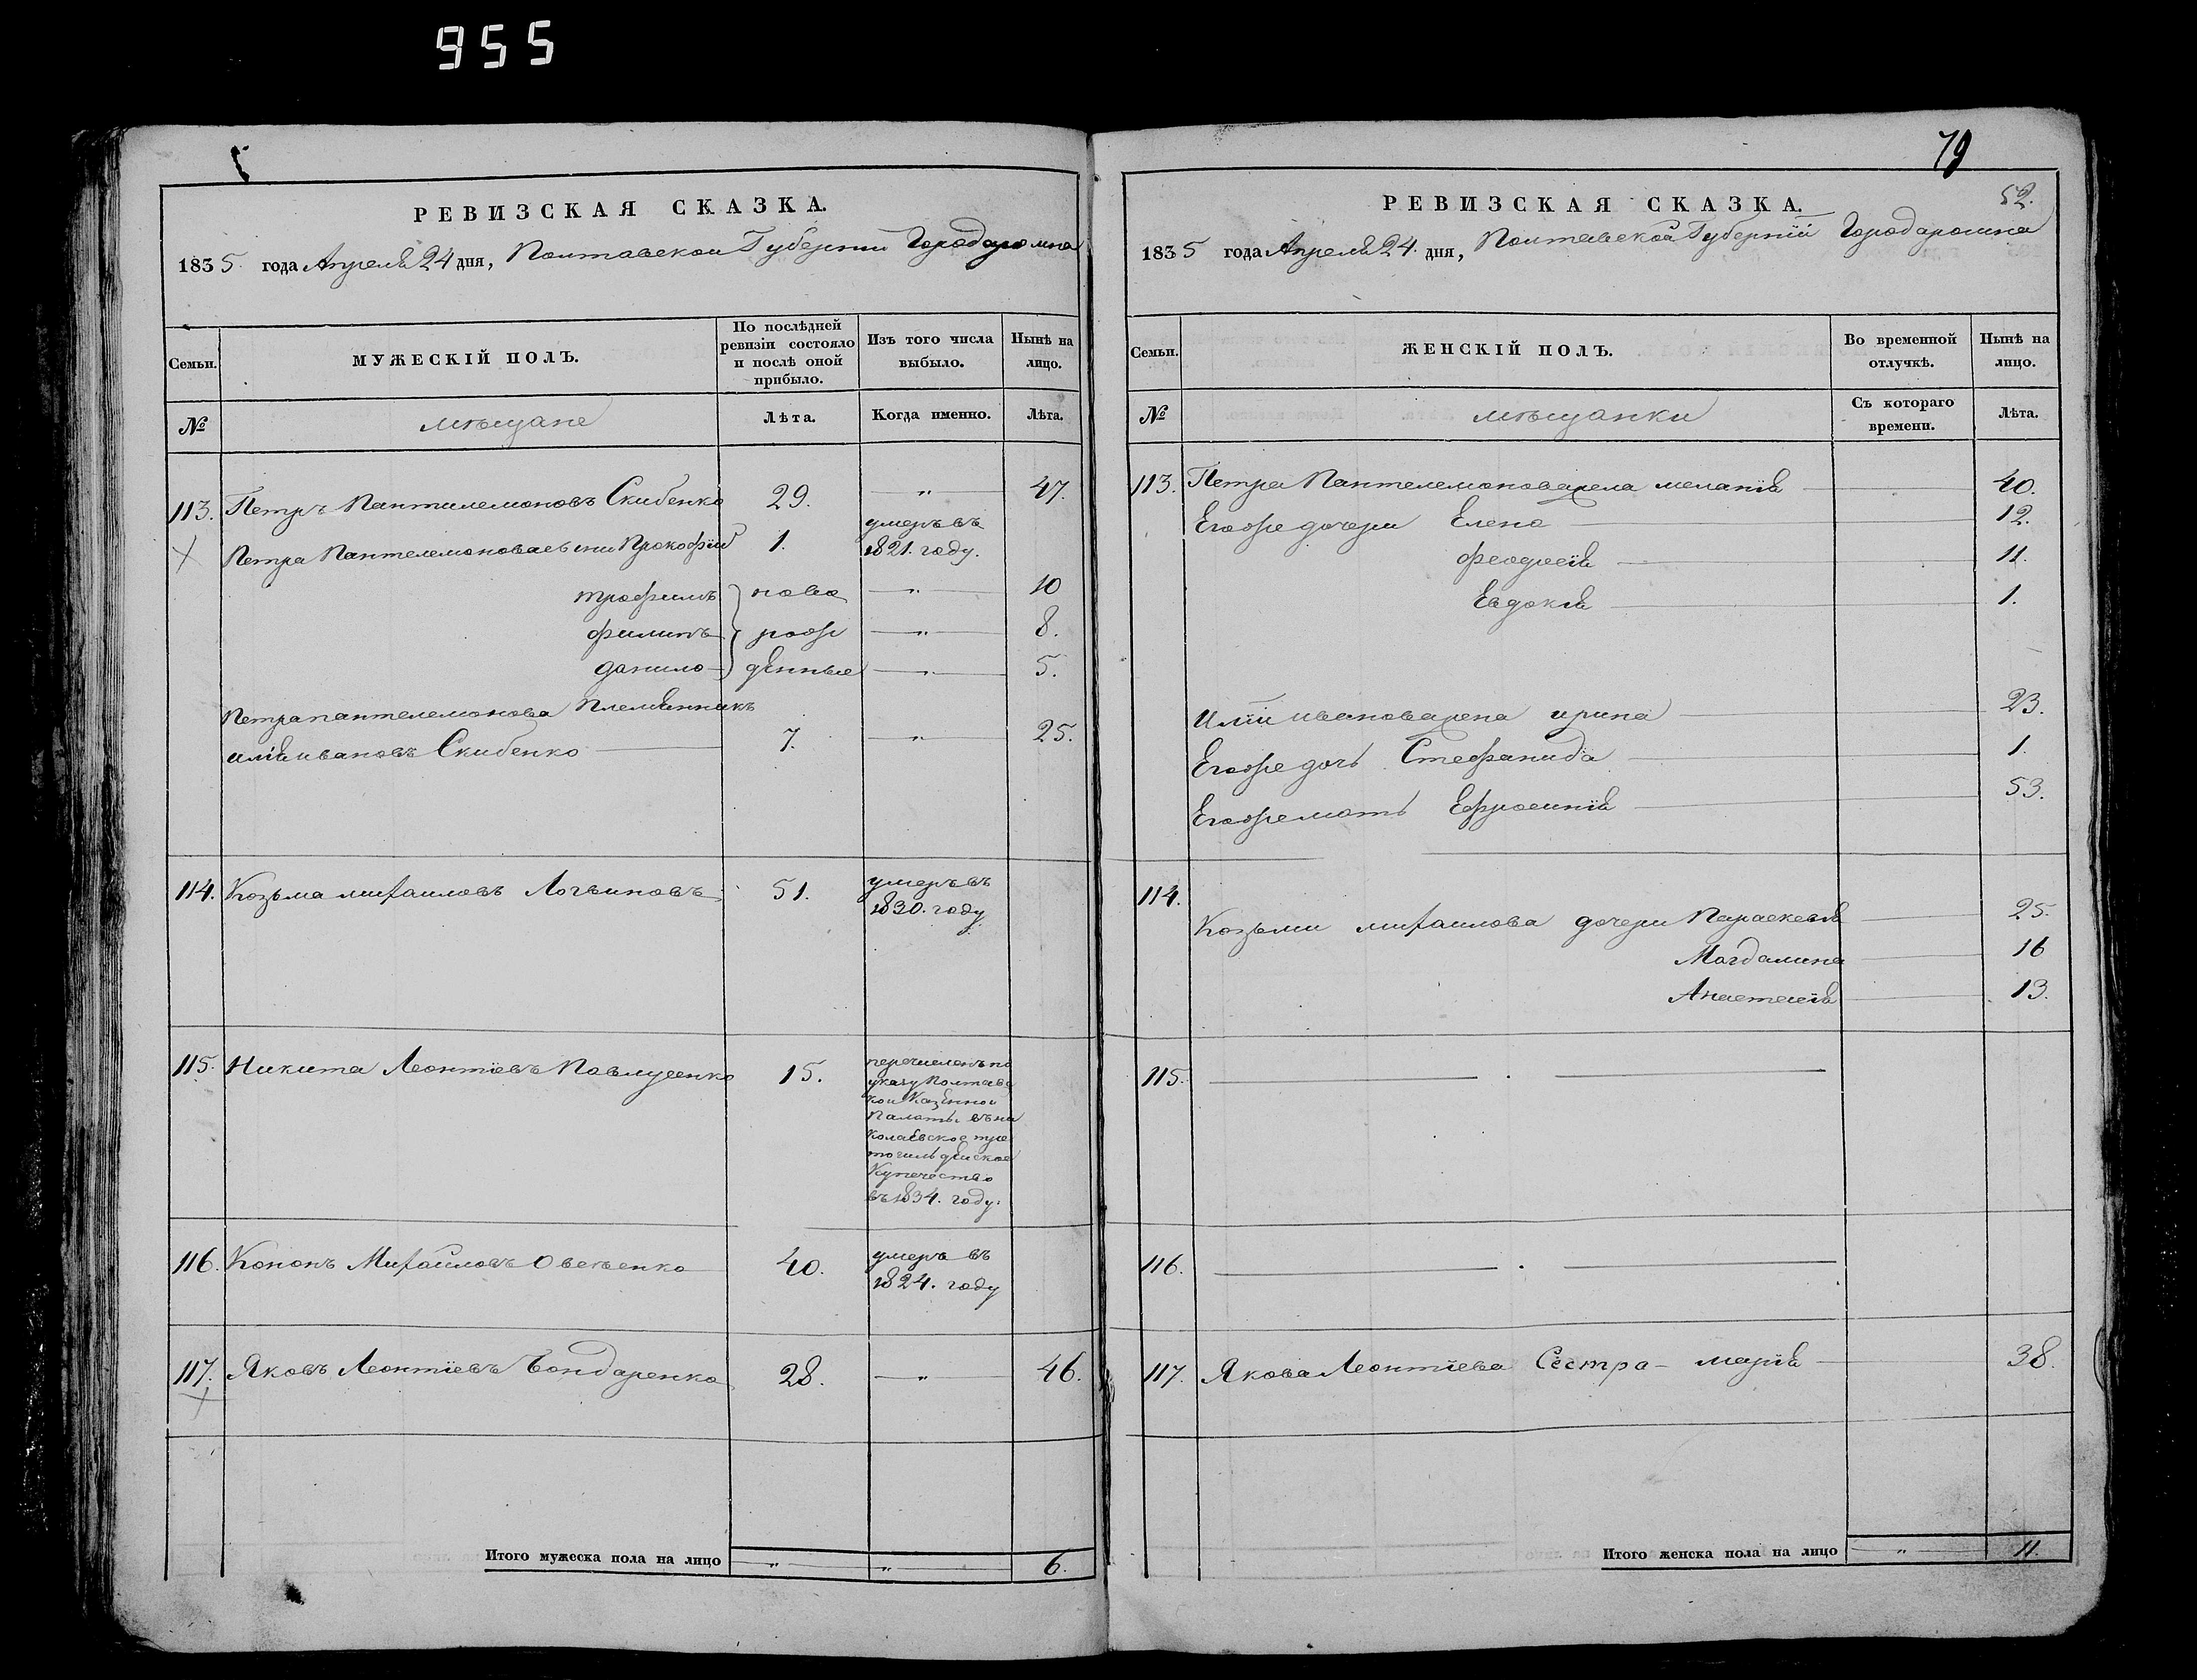 955
79
РЕВИЗСКАЯ СКАЗКА.
1835 года Апреля 24 дня, Полтавской Губернии Города
Семьи.
МУЖЕСКІЙ ПОЛЪ.
По послѣдней ревизіи состояло и послѣ оной прибыло.
Изъ того числа выбыло.
Нынѣ на лицо.
№
мѣщане
Лѣта.
Когда именно.
Лѣта.
113. Петръ Пантилемоновъ Скибенко 29. „ 47.
Петра Пантелемонова сыни Прокофій 1. умеръ въ 1821. году.
трофимъ ново „ 10
филипъ рож „ 8.
данило денные „ 5.
Петра пантелемонова Племянникъ
илія ивановъ Скибенко 7. „ 25.
114. Козьма михаиловъ Логвиновъ 51. умеръ въ
1830. году
115. Никита Леонтіевъ Павлусенко 15. перечисленъ по
указу Полтавс
кой Казенной
Палаты въ ни
колаевское тре
тогильдейское
Купечество
въ 1834. году.
116. Кононъ Михайловъ 40. умеръ въ
1824. году
117. Яковъ Леонтіевъ Бондаренко 28. „ 46.
Итого мужеска пола на лицо „ „ 6.
52.
РЕВИЗСКАЯ СКАЗКА.
1835 года Апреля 24. дня, Полтавской Губерній Города
Семьи.
ЖЕНСКІЙ ПОЛЪ.
Во временной отлучкѣ.
Нынѣ на лицо.
№
мѣщанки
Съ котораго времени.
Лѣта.
113. Петра Пантелемонова жена меланія 40.
Егоже дочери Елена 12.
феодосія 11.
Евдокія 1.
Иліи иванова жена ирина 23.
Егоже дочь Стефанида 1.
Егоже мать Ефросинія 53.
114.
Козьми михаилова дочери Параскевія 25.
Магдалина 16
Анастасія 13.
115.
116.
117. Якова Леонтіева Сестра - марія 38.
Итого женска пола на лицо „ 11.